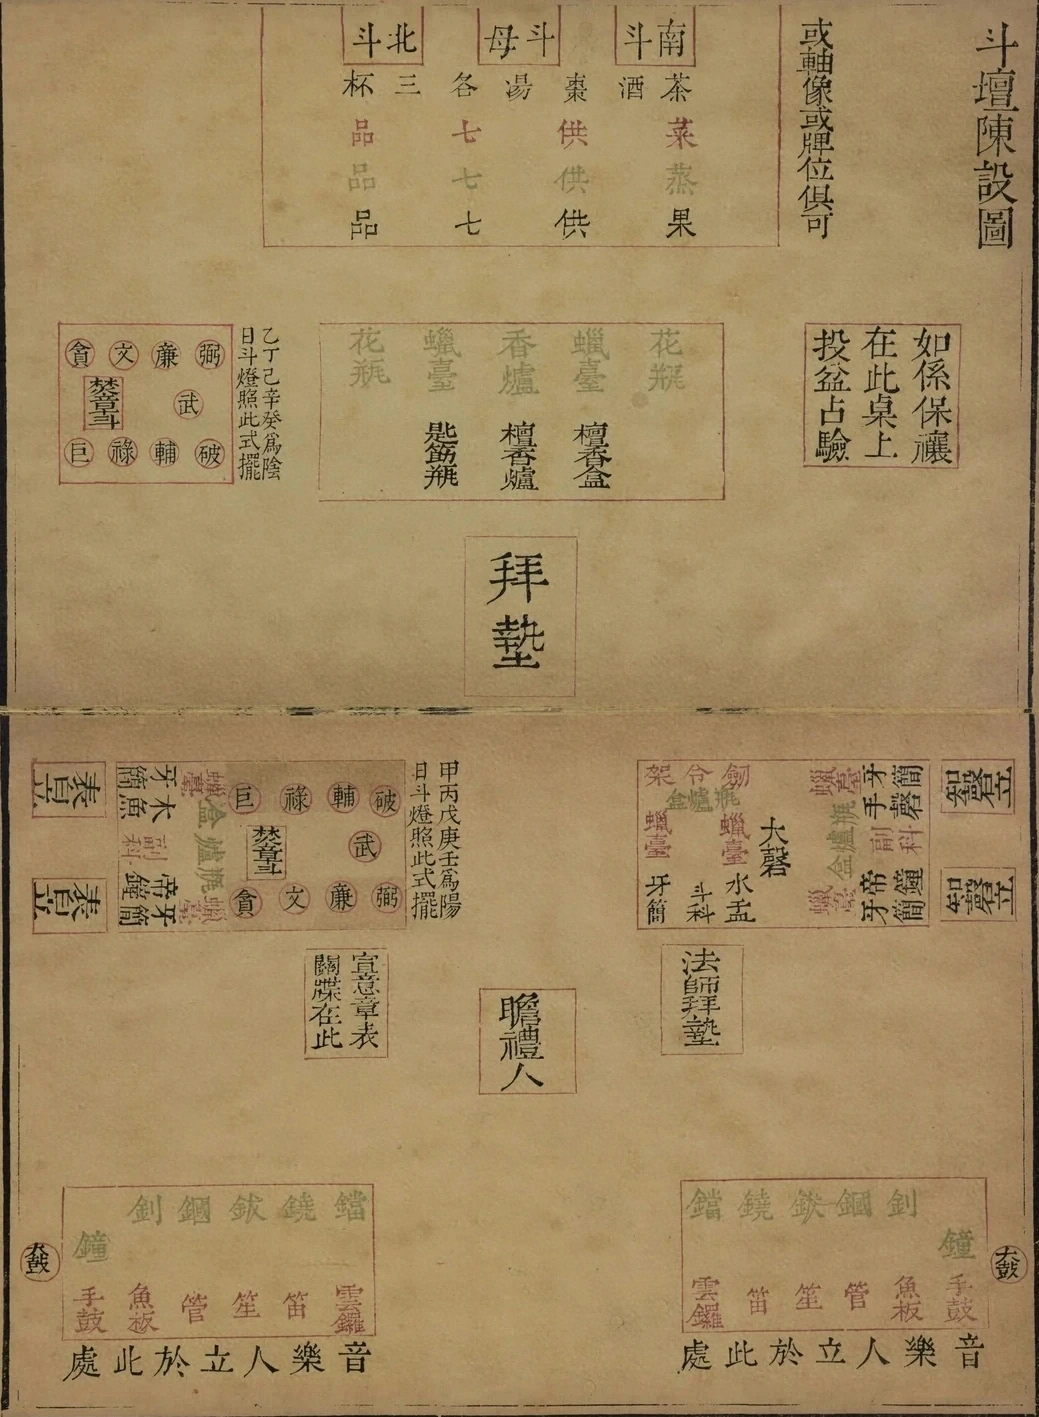 斗壇陳設圖
或軸像或牌位俱可
南斗
斗母
北斗
茶酒棗湯各三杯
菜供七品
蒸供七品
果供七品
如係保禳
在此桌上
投盆占驗
花瓶
蠟臺
香爐
蠟臺
花瓶
檀香盒
檀香爐
匙筯瓶
乙丁己辛癸爲陰
日斗燈照此式擺
弼
廉
文
貪
武
焚章斗
破
輔
祿
巨
拜墊
智磬立
智磬立
簡磬科鐘簡
牙手副帝牙
蠟臺
瓶爐盒
蠟臺
劒令架
瓶爐盒
蠟臺
蠟臺
大磬
水盂
斗科
牙簡
甲丙戊庚壬爲陽
日斗燈照此式擺
破
輔
祿
巨
武
焚章斗
弼
廉
文
貪
蠟臺
盒爐瓶
蠟臺
牙木副帝牙
簡魚科鐘簡
表音立
表音立
法師拜墊
瞻禮人
宣意章表
關牒在此
鐺鐃鈸鐗釗
鐘
雲鑼
笛
笙
管
魚板
手鼓
大鼓
音樂人立於此處
鐺鐃鈸鐗釗
鐘
雲鑼
笛
笙
管
魚板
手鼓
大鼓
音樂人立於此處